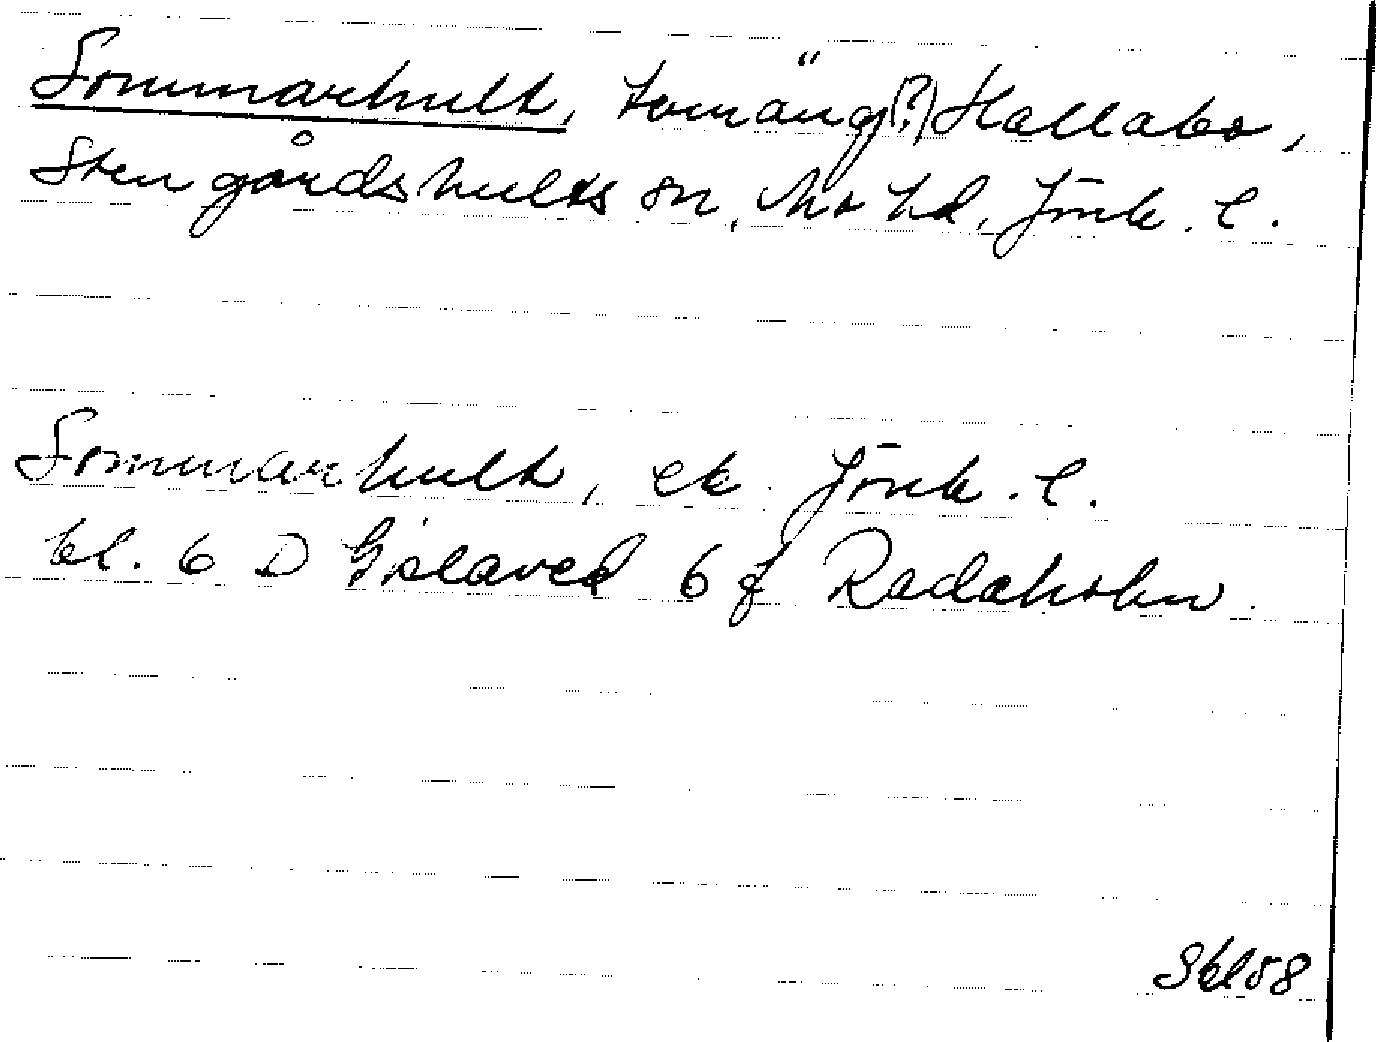 Sommarhult, tomäng(?) Hallabo,
Stengårdshults sn, Mo hd, Jönk. l.
Sommarhult, ek. Jönk. l.
bl. 6 D Gislaved 6 f Radaholm
Skl 58